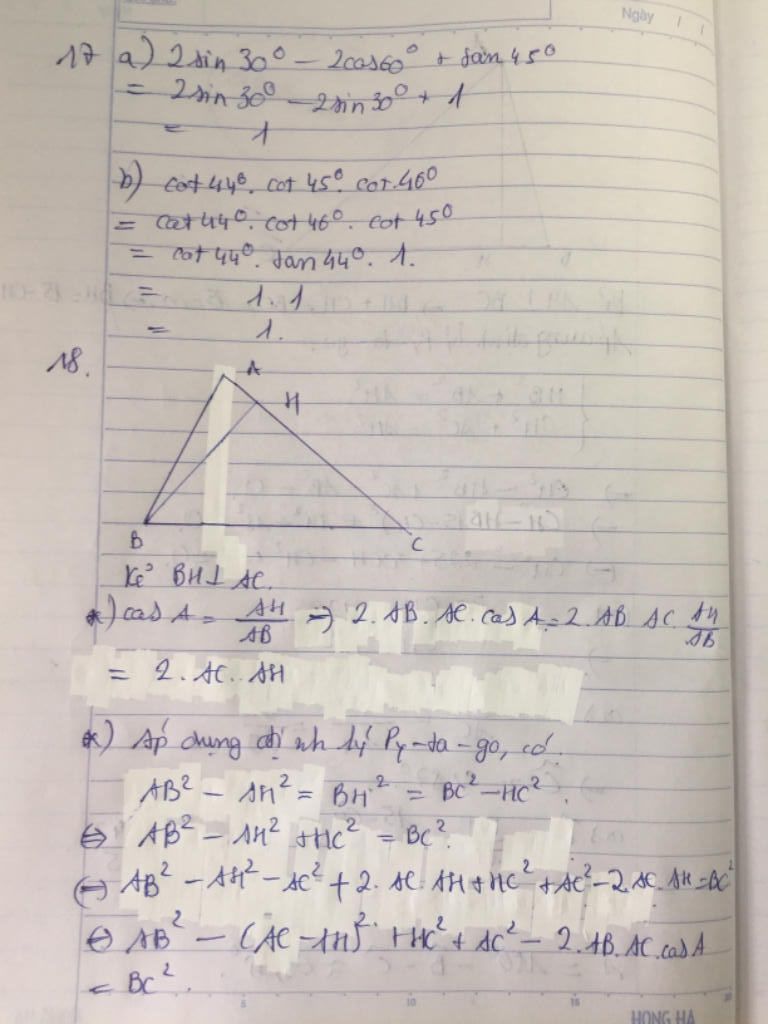 Ngày / /
17 a) 2sin 30° - 2cos60° + tan 45°
= 2sin 30° - 2sin 30° + 1
= 1
b) cot 44°. cot 45°. cot.46°
= cot 44°. cot 46°. cot 45°
= cot 44°. tan 44°. 1.
= 1. 1
= 1.
18.
A
H
B
C
Kẻ BH⊥ AC.
*) cos A = AH/AB => 2. AB. AC. cos A = 2. AB. AC. AH/AB
= 2. AC. AH
*) Áp dụng định lý Py-ta-go, có.
AB² - AH² = BH² = BC² - HC².
⇔ AB² - AH² + HC² = BC².
⇔ AB² - AH² - AC² + 2. AC. AH + HC² + AC² - 2. AC. AH = BC²
⇔ AB² - (AC - AH)² + HC² + AC² - 2. AB. AC. cos A
= BC².
5 10 15 20
HONG HA